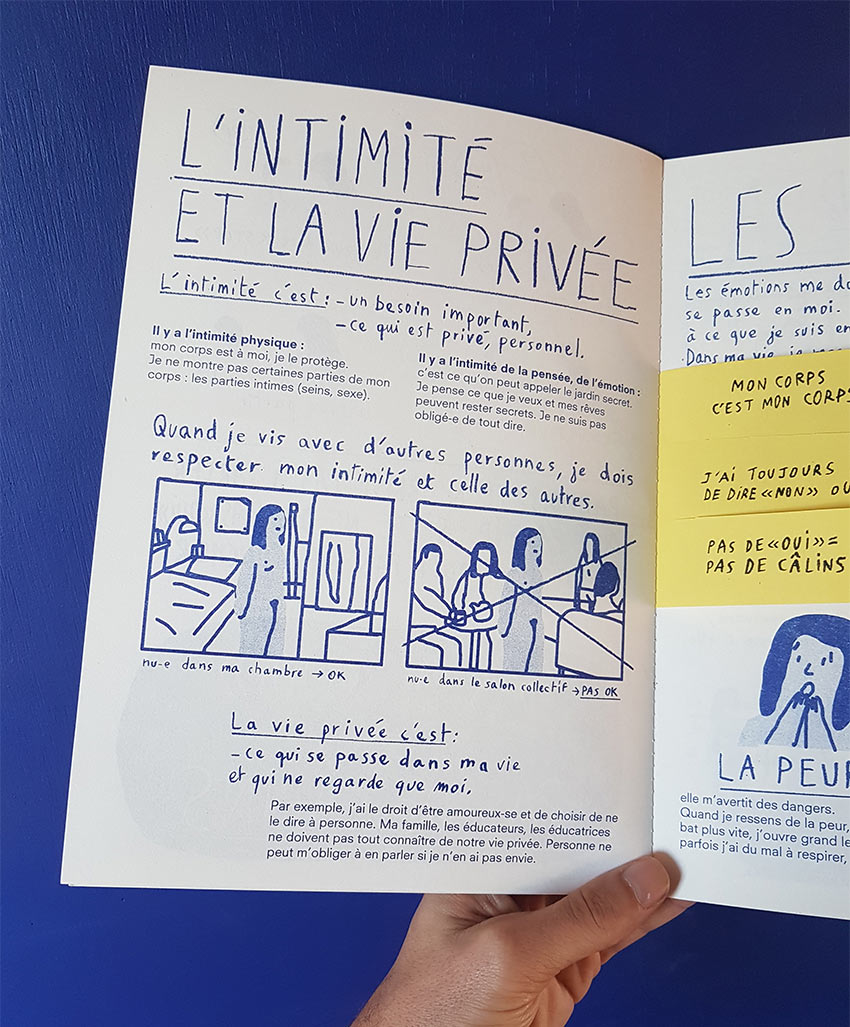 L'iNTiMiTÉ
ET LA ViE PRiVÉE
L'intimité c'est : - un besoin important,
- ce qui est privé, personnel.
Il y a l'intimité physique :
mon corps est à moi, je le protège.
Je ne montre pas certaines parties de mon
corps : les parties intimes (seins, sexe).
Il y a l'intimité de la pensée, de l'émotion :
c'est ce qu'on peut appeler le jardin secret.
Je pense ce que je veux et mes rêves
peuvent rester secrets. Je ne suis pas
obligé-e de tout dire.
Quand je vis avec d'autres personnes, je dois
respecter mon intimité et celle des autres.
nu-e dans ma chambre → OK
nu-e dans le salon collectif → PAS OK
La vie privée c'est :
- ce qui se passe dans ma vie
et qui ne regarde que moi.
Par exemple, j'ai le droit d'être amoureux-se et de choisir de ne
le dire à personne. Ma famille, les éducateurs, les éducatrices
ne doivent pas tout connaître de notre vie privée. Personne ne
peut m'obliger à en parler si je n'en ai pas envie.
LES
Les émotions me
se passe en moi.
à ce que je suis en
Dans ma vie, je
MON CORPS
C'EST MON CORPS
J'Ai TOUJOURS
DE DiRE «NON» OU
PAS DE «OUi» =
PAS DE CÂLiNS
LA PEUR
elle m'avertit des dangers.
Quand je ressens de la peur,
bat plus vite, j'ouvre grand le
parfois j'ai du mal à respirer,